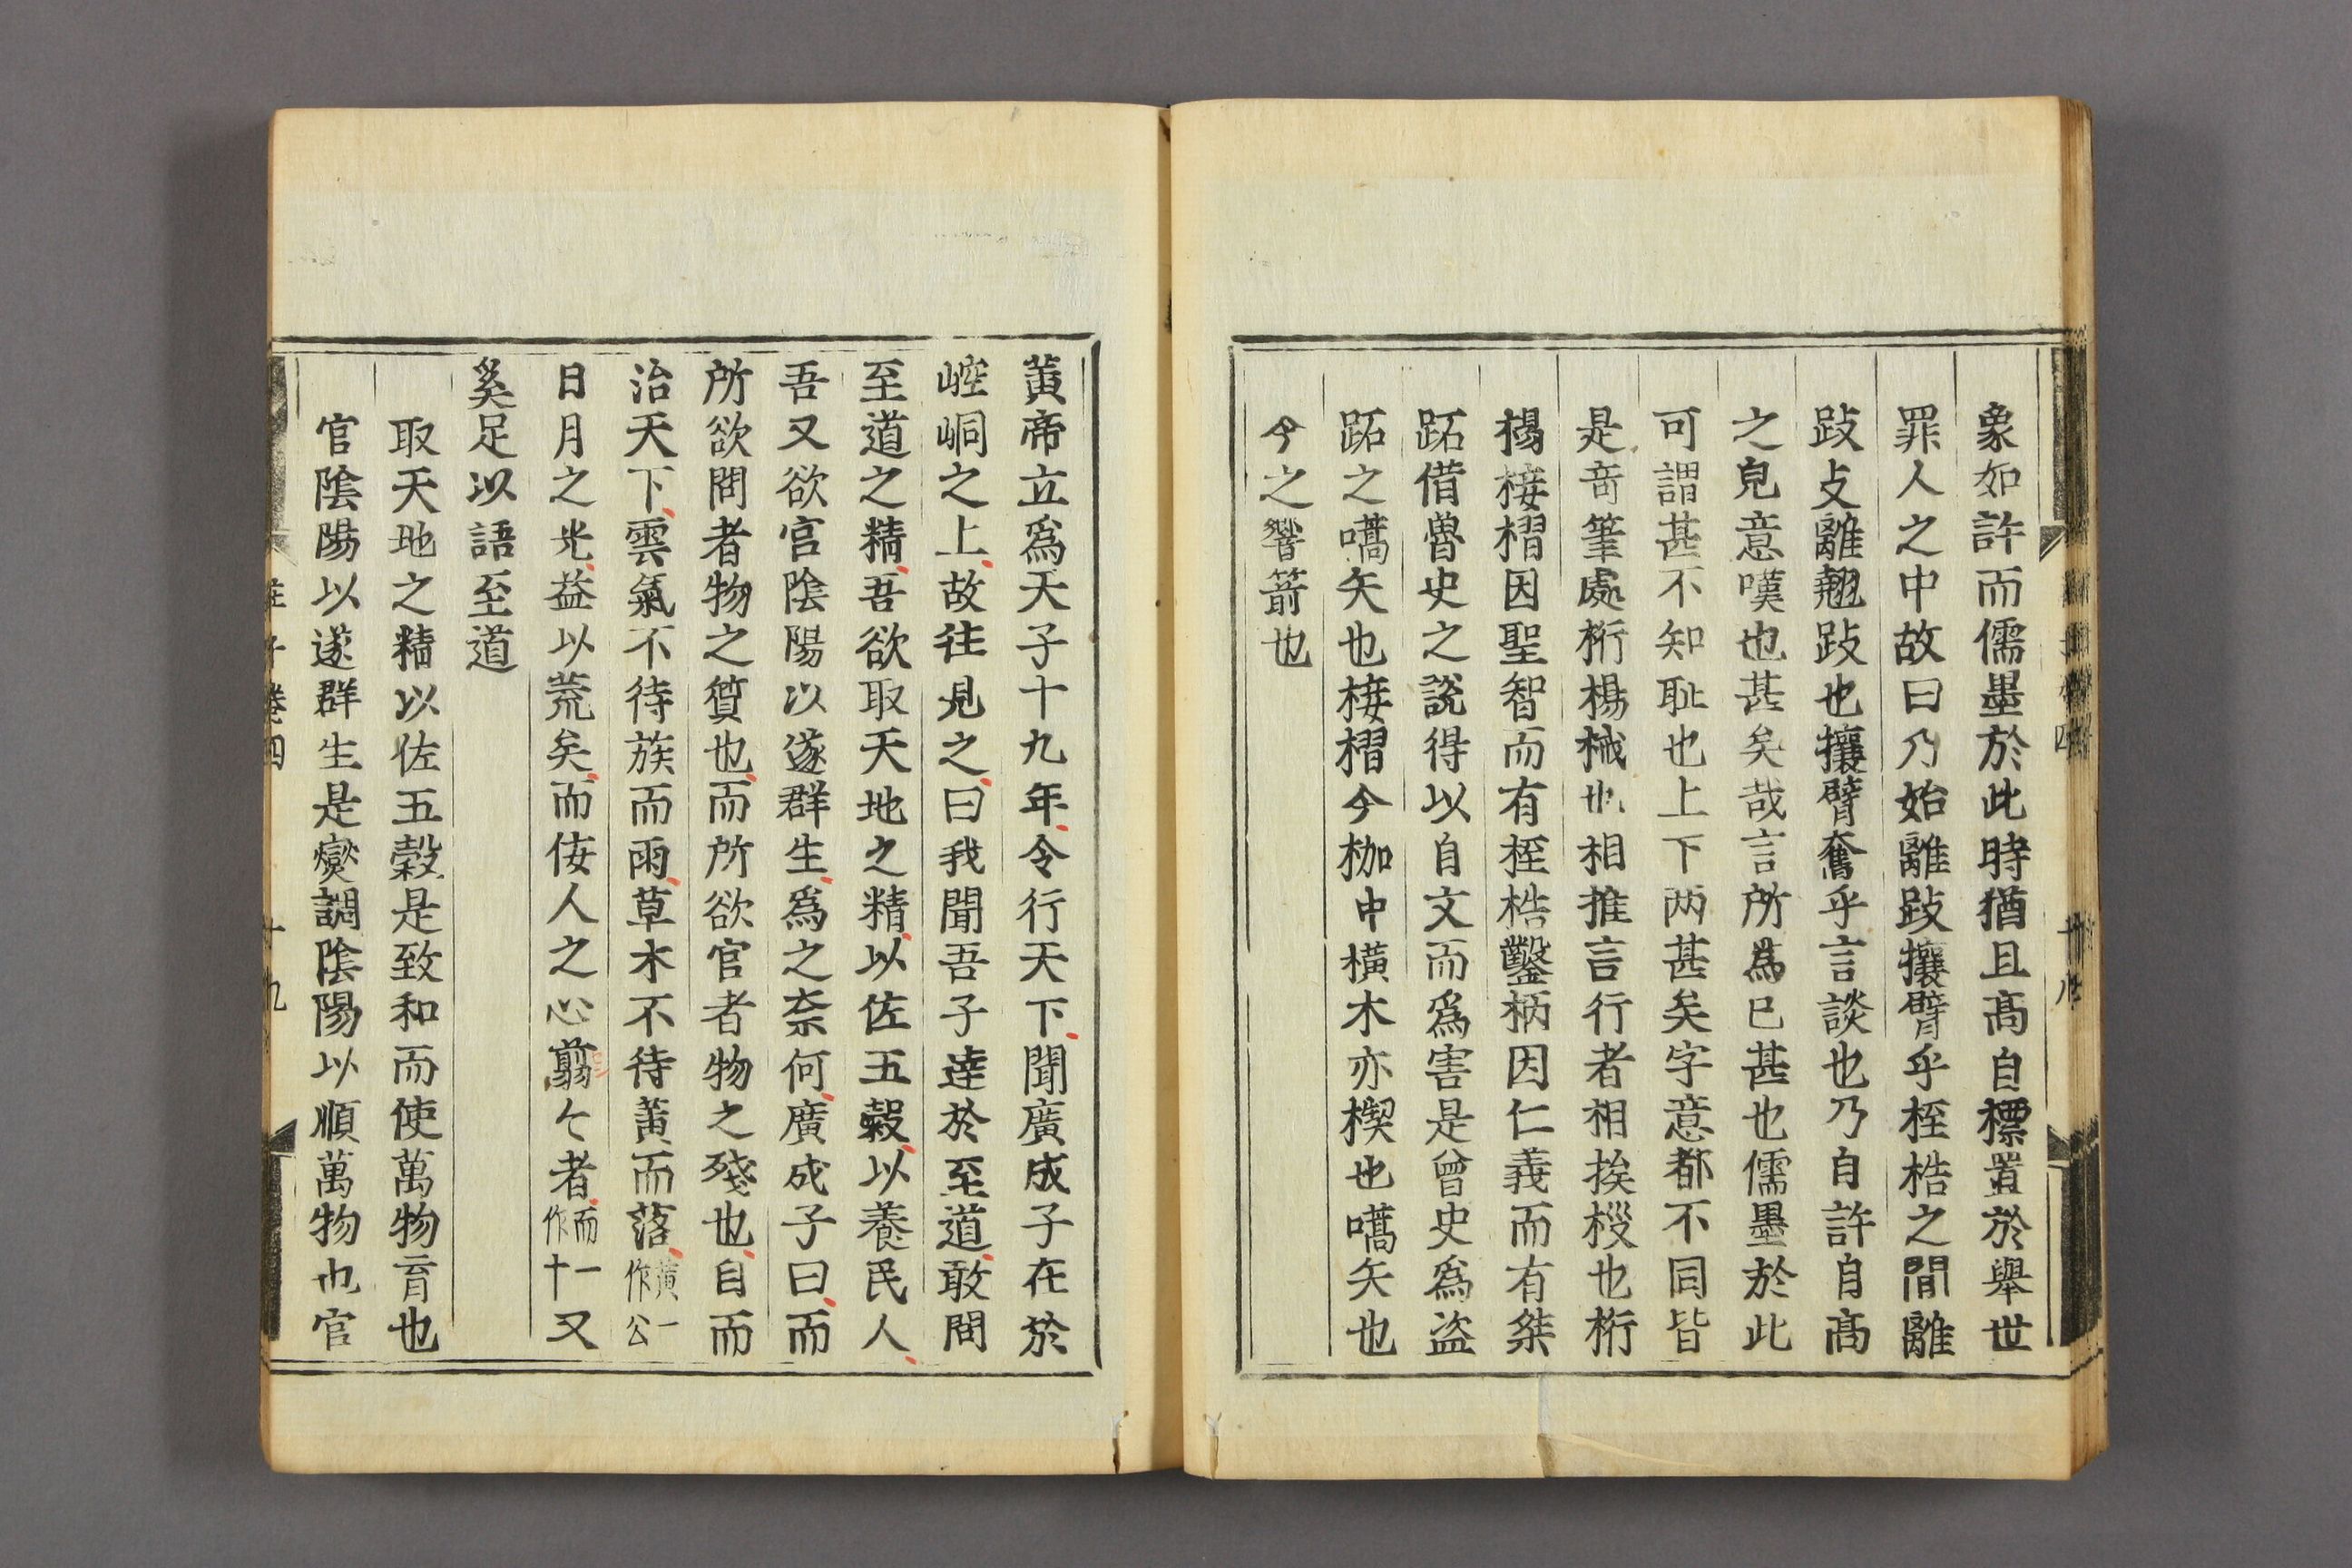 象如許而儒墨於此時猶且高自標置於舉世
罪人之中故曰乃始離跂攘臂乎桎梏之間離
跂攴離翹跂也攘臂奮乎言談也乃自許自高
之皃意嘆也甚矣哉言所爲已甚也儒墨於此
可謂甚不知耻也上下两甚矣字意都不同皆
是竒筆處桁楊械也相推言行者相挨桵也桁
楊椄槢因聖智而有桎梏鑿柄因仁義而有桀
跖借曾史之說得以自文而爲害是曾史爲盗
跖之嚆矢也椄槢今枷中横木亦楔也嚆矢也
今之響箭也
黄帝立爲天子十九年令行天下聞廣成子在於
崆峒之上故往見之曰我聞吾子達於至道敢問
至道之精吾欲取天地之精以佐五穀以養民人
吾又欲官陰陽以遂群生爲之奈何廣成子曰而
所欲問者物之質也而所欲官者物之殘也自而
治天下雲氣不待族而雨草木不待黄而落黄一作公
日月之光益以荒矣而佞人之心翦々者而一作十又
奚足以語至道
取天地之精以佐五穀是致和而使萬物育也
官陰陽以遂群生是爕調陰陽以順萬物也官
莊子卷四
十九